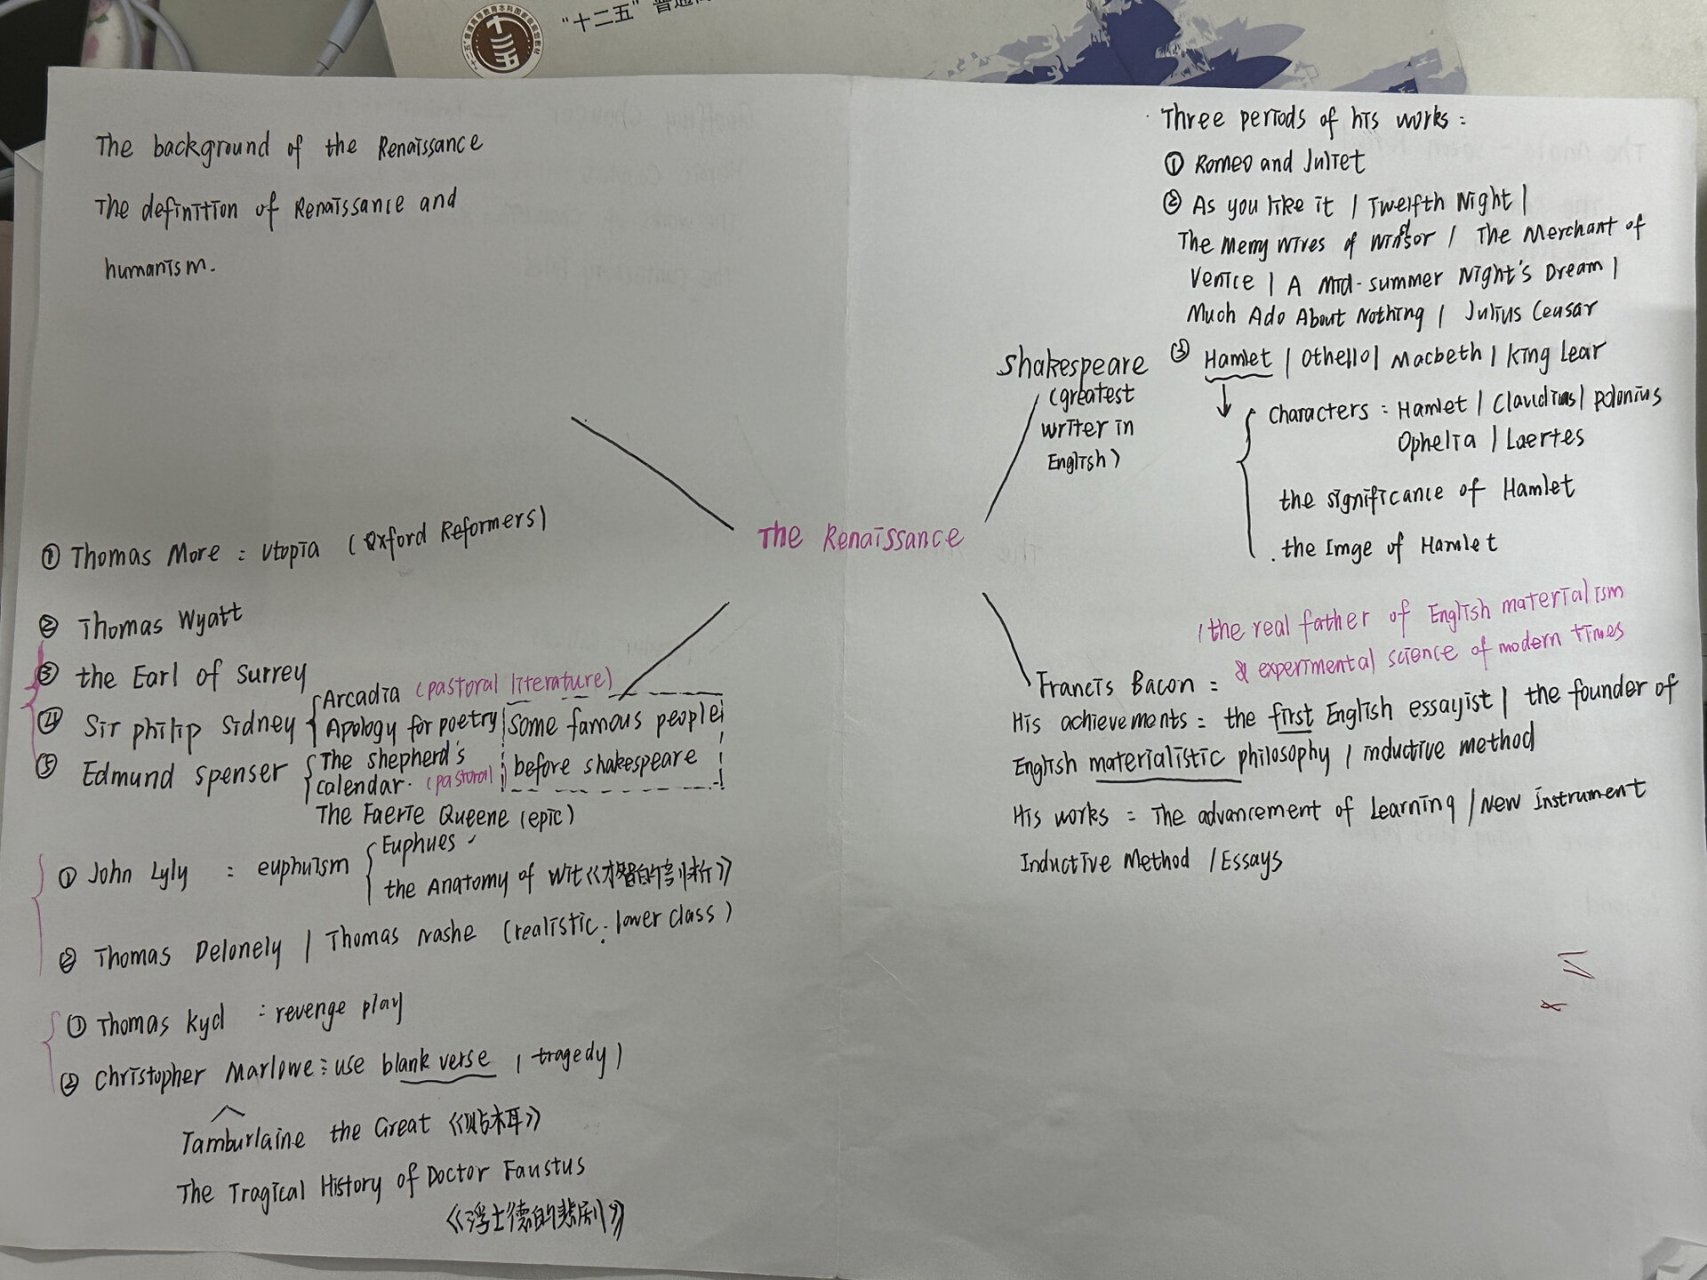 "十二五"普通
十二五
The background of the Renaissance
The definition of Renaissance and
humanism.
① Thomas More : Utopia (Oxford Reformers)
② Thomas Wyatt
③ the Earl of Surrey
④ Sir philip Sidney
Arcadia (pastoral literature)
Apology for poetry
⑤ Edmund Spenser
The shepherd's
calendar. (pastoral)
The Faerie Queene (epic)
some famous people
before shakespeare
① John Lyly : euphuism
Euphues
the Anatomy of Wit《才智的剖析》
② Thomas Delonely / Thomas Nashe (realistic. lower class)
① Thomas Kyd : revenge play
② Christopher Marlowe : use blank verse (tragedy)
Tamburlaine the Great《贴木耳》
The Tragical History of Doctor Faustus
《浮士德的悲剧》
The Renaissance
Shakespeare
(greatest
writer in
English)
Three periods of his works :
① Romeo and Juliet
② As you like it / Twelfth Night /
The Merry Wives of Windsor / The Merchant of
Venice / A Mid-summer Night's Dream /
Much Ado About Nothing / Julius Ceusar
③ Hamlet / Othello / Macbeth / King Lear
Characters : Hamlet / Claudius / Polonius
Ophelia / Laertes
the significance of Hamlet
the Imge of Hamlet
/ the real father of English materialism
& experimental science of modern times
Francis Bacon :
His achievements : the first English essayist / the founder of
English materialistic philosophy / inductive method
His works : The advancement of Learning / New Instrument
Inductive Method / Essays